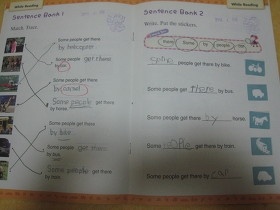 Write Reading
Sentence Bank 1
Match. Trace.
Some people get there
by helicopter.
Some people get there
by
Some people get there
by camel.
Some people get there
by horse.
Some people get there
by bike.
Some people get there
by bus.
Some people get there
by train.
Write Reading
Sentence Bank 2
Write. Put the stickers.
there Some by people car
Some people get there by bike.
Some people get there by bus.
Some people get there by horse.
Some people get there by train.
Some people get there by car